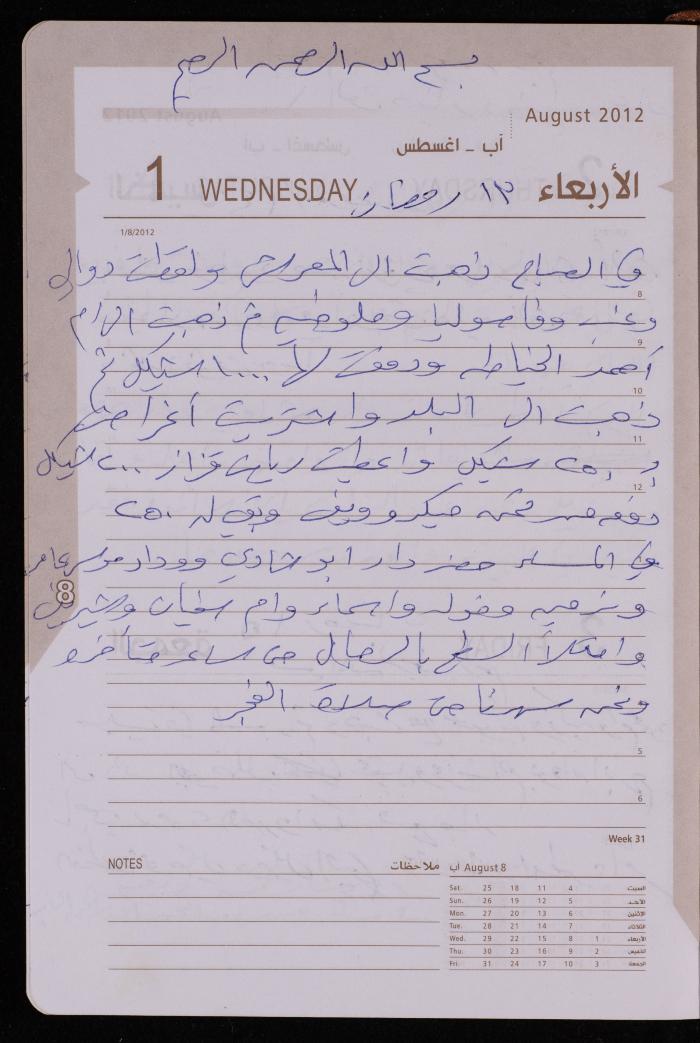 بسم الله الرحمن الرحيم
August 2012
آب - اغسطس
1 WEDNESDAY ١٣ رمضان الأربعاء
1/8/2012
في الصباح ذهبت الى المعرش ولقطة دوالي
8
وعنب وفاصوليا وملوخيه ثم ذهبت الى ام
9
أحمد الخياطه ودفعت لها ١٠٠٠ شيكل ثم
10
ذهبت الى البلد واشتريت أغراض
11
ب ٢٥٠ شيكل واعطيت قزاز ٢٠٠ شيكل
12
دفعه من ثمن ميكروويف وبقي له ٢٥٠
في المساء حضر دار ابو شادي وودار عامر
8
ونرمين وخوله واسماء وام سفيان وشيرين
وامتلأ السطح حتى ساعه متأخره
ونحن سهرنا حتى صلاة الفجر
5
6
Week 31
NOTES ملاحظات
آب August 8
Sat. 25 18 11 4 السبت
Sun. 26 19 12 5 الأحد
Mon. 27 20 13 6 الإثنين
Tue. 28 21 14 7 الثلاثاء
Wed. 29 22 15 8 1 الأربعاء
Thu. 30 23 16 9 2 الخميس
Fri. 31 24 17 10 3 الجمعة